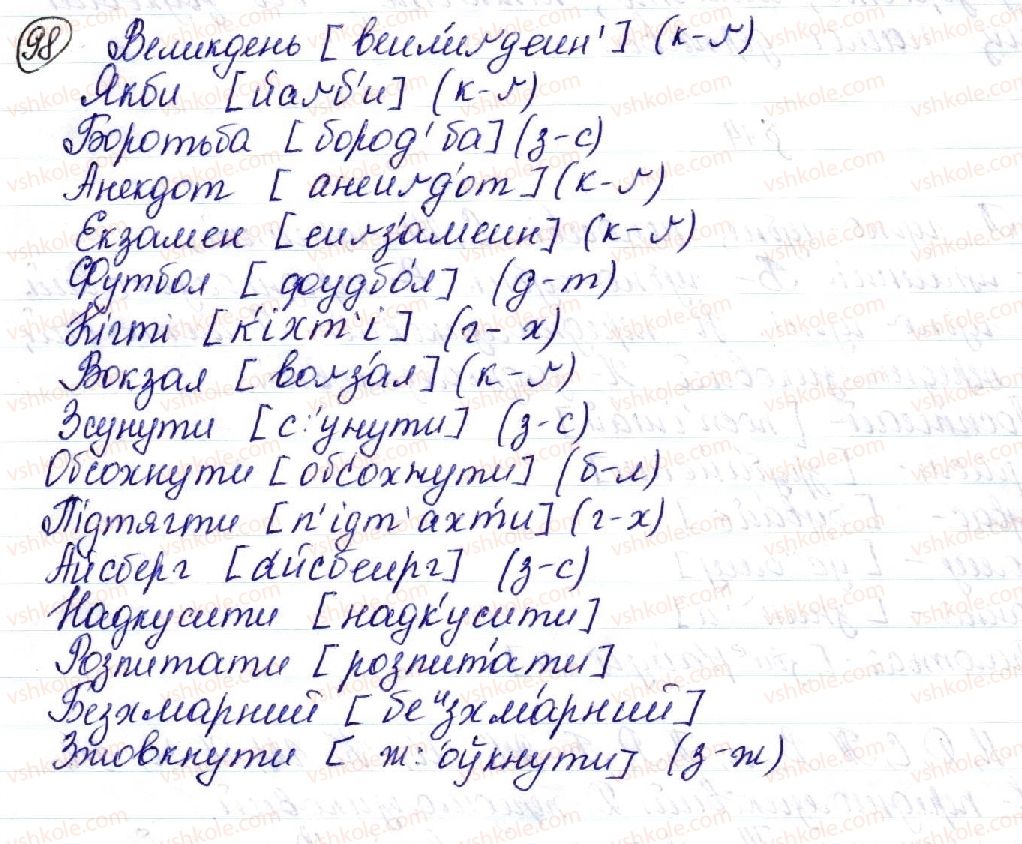 98 Великдень [веилиґдеин'] (к-ґ)
Якби [йаґби] (к-ґ)
Боротьба [бород'ба] (з-с)
Анекдот [анеиґдот] (к-ґ)
Екзамен [еиґзамеин] (к-ґ)
Футбол [фоудбол] (д-т)
Кігті [к'іхт'і] (г-х)
Вокзал [воґзал] (к-ґ)
Зсунути [с:унути] (з-с)
Обсохнути [обсохнути] (б-л)
Підтягти [п'ідт'ахти] (г-х)
Айсберг [айсбеирг] (з-с)
Надкусити [надкусити]
Розпитати [розпитати]
Безхмарний [беизхмарний]
Зжовкнути [ж:оўкнути] (з-ж)